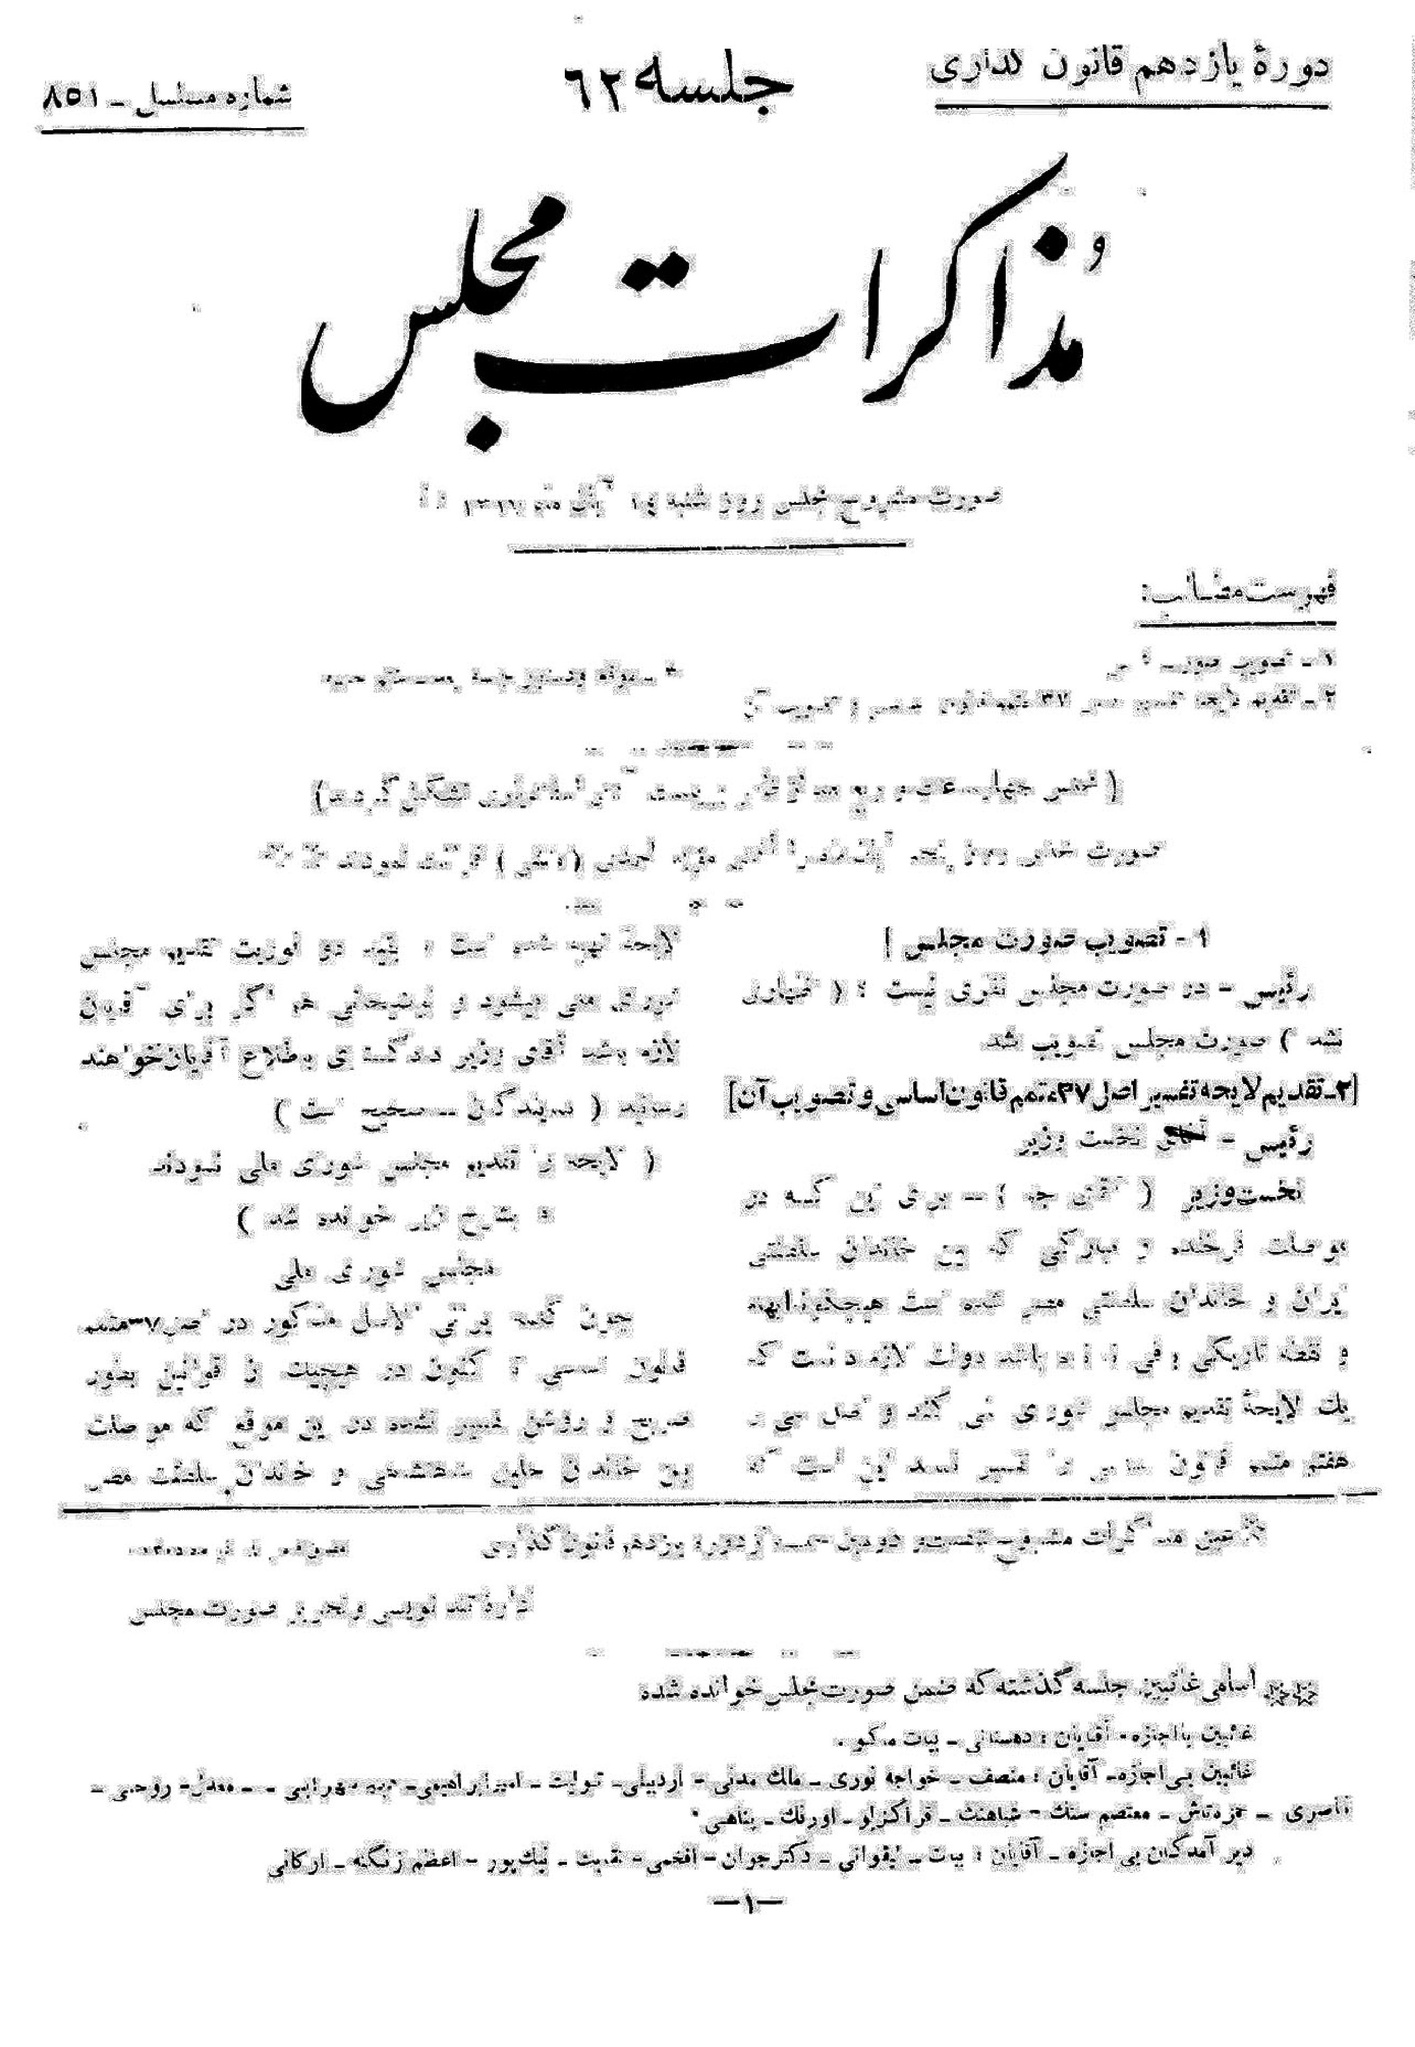 دورهٔ یازدهم قانون گذاری
جلسه ۶۲
شماره مسلسل ـ ۸۵۱
مذاکرات مجلس
صورت مشروح مجلس روز شنبه ۱۴
فهرست مطالب:
۱ ـ تصویب صورت
۲ ـ تقدیم لایحه تفسیر اصل ۳۷ متمم قانون اساسی و تصویب آن
۳ ـ موقع و دستور جلسه بعد ـ ختم جلسه
( مجلس چهار ساعت و ربع بعد از ظهر بریاست آقای اسفندیاری تشکیل گردید)
صورت مجلس روز پنجم آبانماه را آقای مؤید احمدی (منشی) قرائت نمودند
۱ ـ تصویب صورت مجلس ]
رئیس ـ در صورت مجلس نظری نیست ؟ ( اظهاری
نشد ) صورت مجلس تصویب شد
[۲ـ تقدیم لایحه تفسیر اصل ۳۷ متمم قانون اساسی و تصویب آن]
رئیس ـ آقای نخست وزیر
نخست وزیر ( آقای جم ) ـ برای این که در
مواصلت فرخنده و مبارکی که بین خاندان سلطنتی
ایران و خاندان سلطنتی مصر شده است هیچگونه ابهام
و نقطه تاریکی باشد دولت لازم دانست که
یک لایحهٔ تقدیم مجلس شورای ملی کند و اصل سی و
هفتم متمم قانون اساسی را تفسیر کند این است که
لایحهٔ تهیه شده است و بقید دو فوریت تقدیم مجلس
شورای ملی میشود و توضیحاتی هم اگر برای آقایان
لازم باشد آقای وزیر دادگستری باطلاع آقایان خواهند
رسانید ( نمایندگان ـ صحیح است )
( لایحه را تقدیم مجلس شورای ملی نمودند
و بشرح زیر خوانده شد )
مجلس شورای ملی
چون کلمه ایرانی الاصل مذکور در اصل ۳۷ متمم
قانون اساسی تا کنون در هیچیک از قوانین بطور
صریح و روشن تفسیر نشده در این موقع که مواصلت
بین خاندان جلیل شاهنشاهی و خاندان سلطنت مصر
عین مذاکرات مشروح شصت و دومین جلسه از دوره یازدهم قانون گذاری
ادارهٔ تند نویسی و تحریر صورت مجلس
اسامی غائبین جلسه گذشته که ضمن صورت مجلس خوانده شده
غائبین با اجازه ـ آقایان : دهستانی ـ بیات ماکو .
غائبین بی اجازه ـ آقایان : منصف ـ خواجه نوری ـ ملک مدنی ـ اردبیلی ـ تولیت ـ امیر ابراهیمی ـ ـ معدل ـ روحی ـ
ناصری ـ حمزه تاش ـ معتصم سنک ـ شباهنگ ـ قراگزلو ـ اورنک ـ پناهی
دیر آمدگان بی اجازه ـ آقایان : بیات ـ لیقوانی ـ دکتر جوان ـ افخمی ـ نقابت ـ نیک پور ـ اعظم زنگنه ـ ارگانی
ـ۱ـ